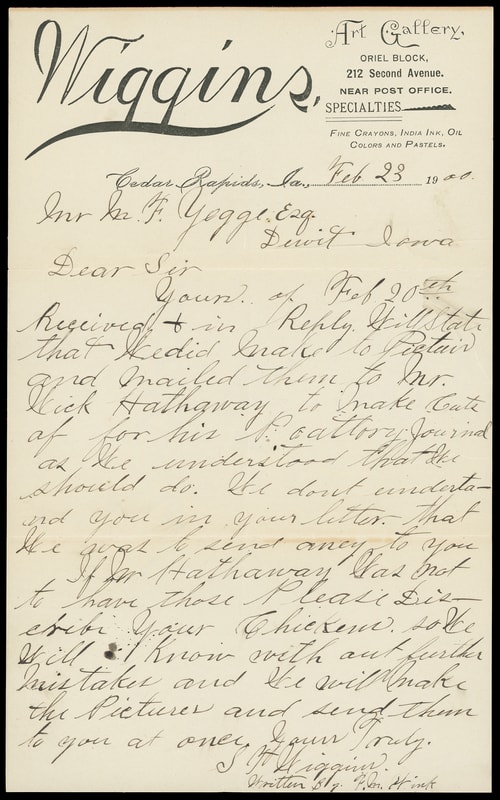 Wiggins,
Art Gallery,
ORIEL BLOCK,
212 Second Avenue.
NEAR POST OFFICE.
SPECIALTIES
FINE CRAYONS, INDIA INK, OIL
COLORS AND PASTELS.
Cedar Rapids, Ia., Feb 23 1900.
Mr M. F. Yegge. Esq.
Dewit Iowa
Dear Sir
Yours. of Feb 20th
Received, + in Reply. Will State
that We did make 10 Pictuir
and mailed them to Mr.
Nick Hathaway to make Cuts
of for his Poultory Journal
as We understood that We
should do. We dont understa-
nd you in your letter. that
We was to send oney to you
If Mr Hathaway Was not
to have those Please Dis-
cribe your Chickens. so We
Will Know with out further
mistakes and We will make
the Pictures and send them
to you at once, Yours Truly.
S W Wiggins.
Written By. F. M. Wink